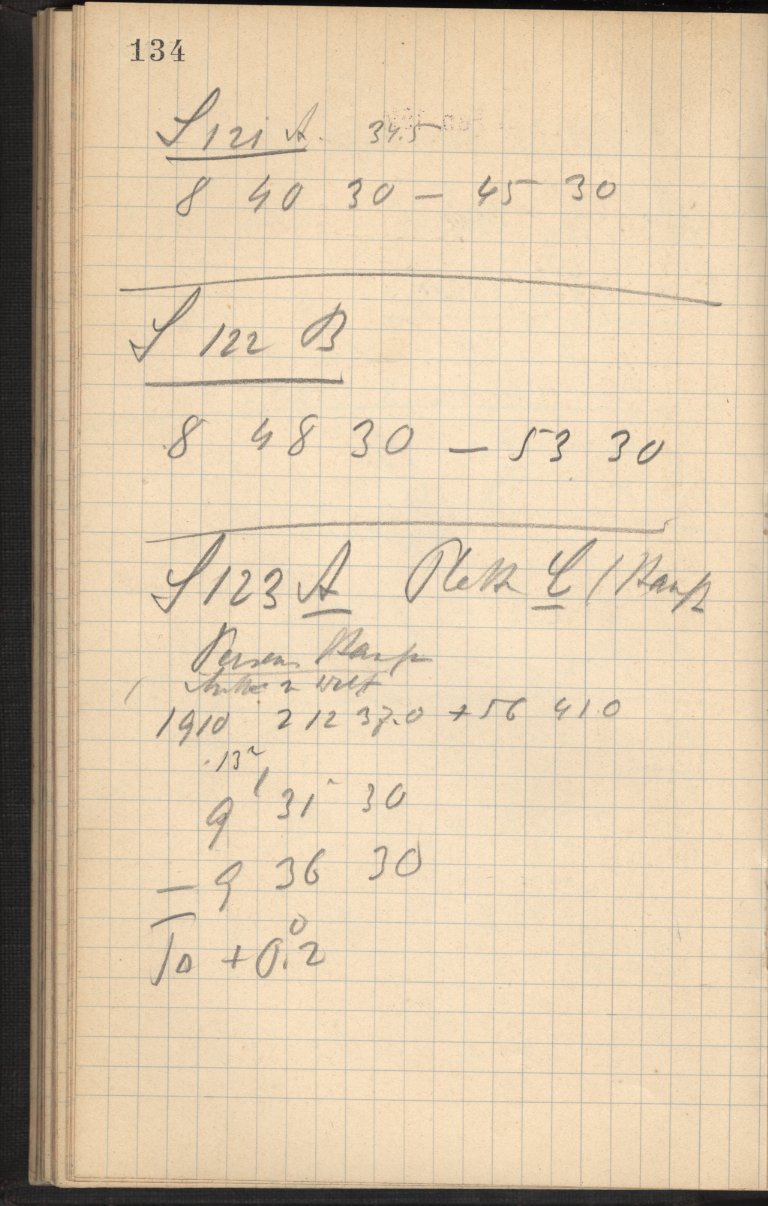 134
S 121 A. 34.5
8 40 30 – 45 30
S 122 B
8 48 30 – 53 30
S 123 A Platte C (
Perseus
1910 2 12 37.0 + 56 41.0
9 31 30
– 9 36 30
+ 0.2